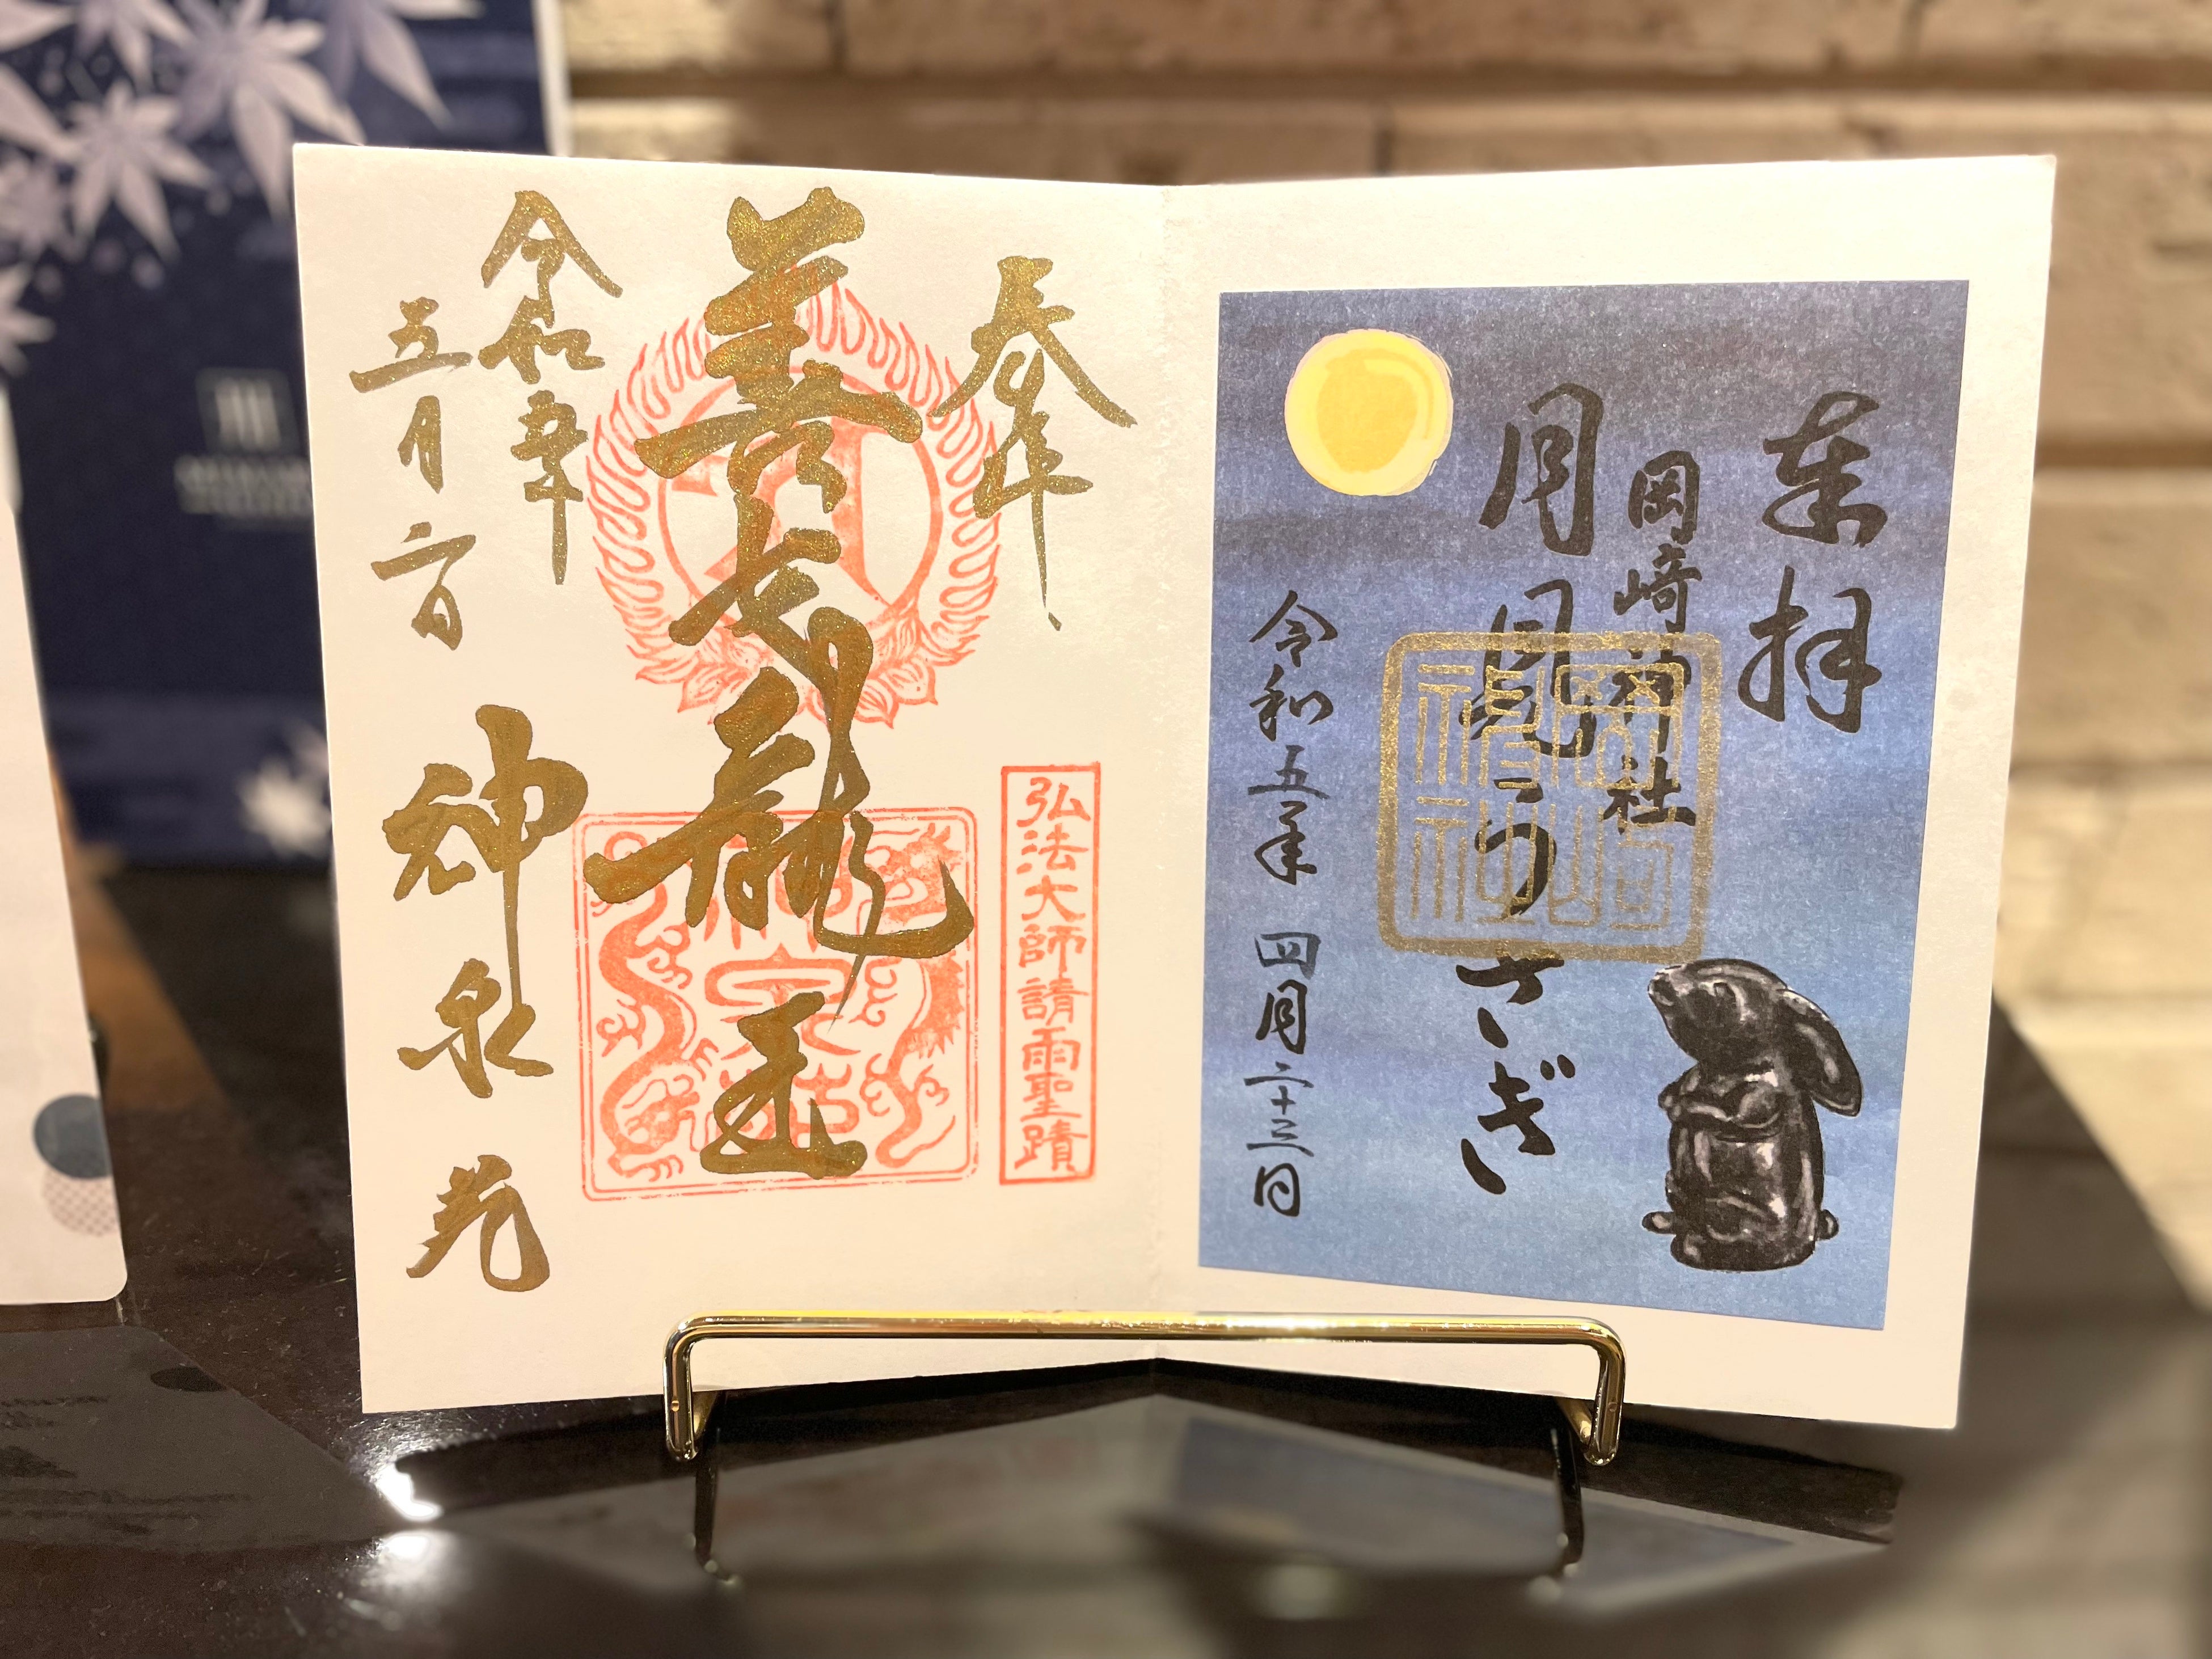 奉拝
岡崎神社
月月見うさぎ
令和五年 四月二十三日
奉拝
善女龍王
弘法大師請雨聖蹟
令和五年
五月六日
神泉苑